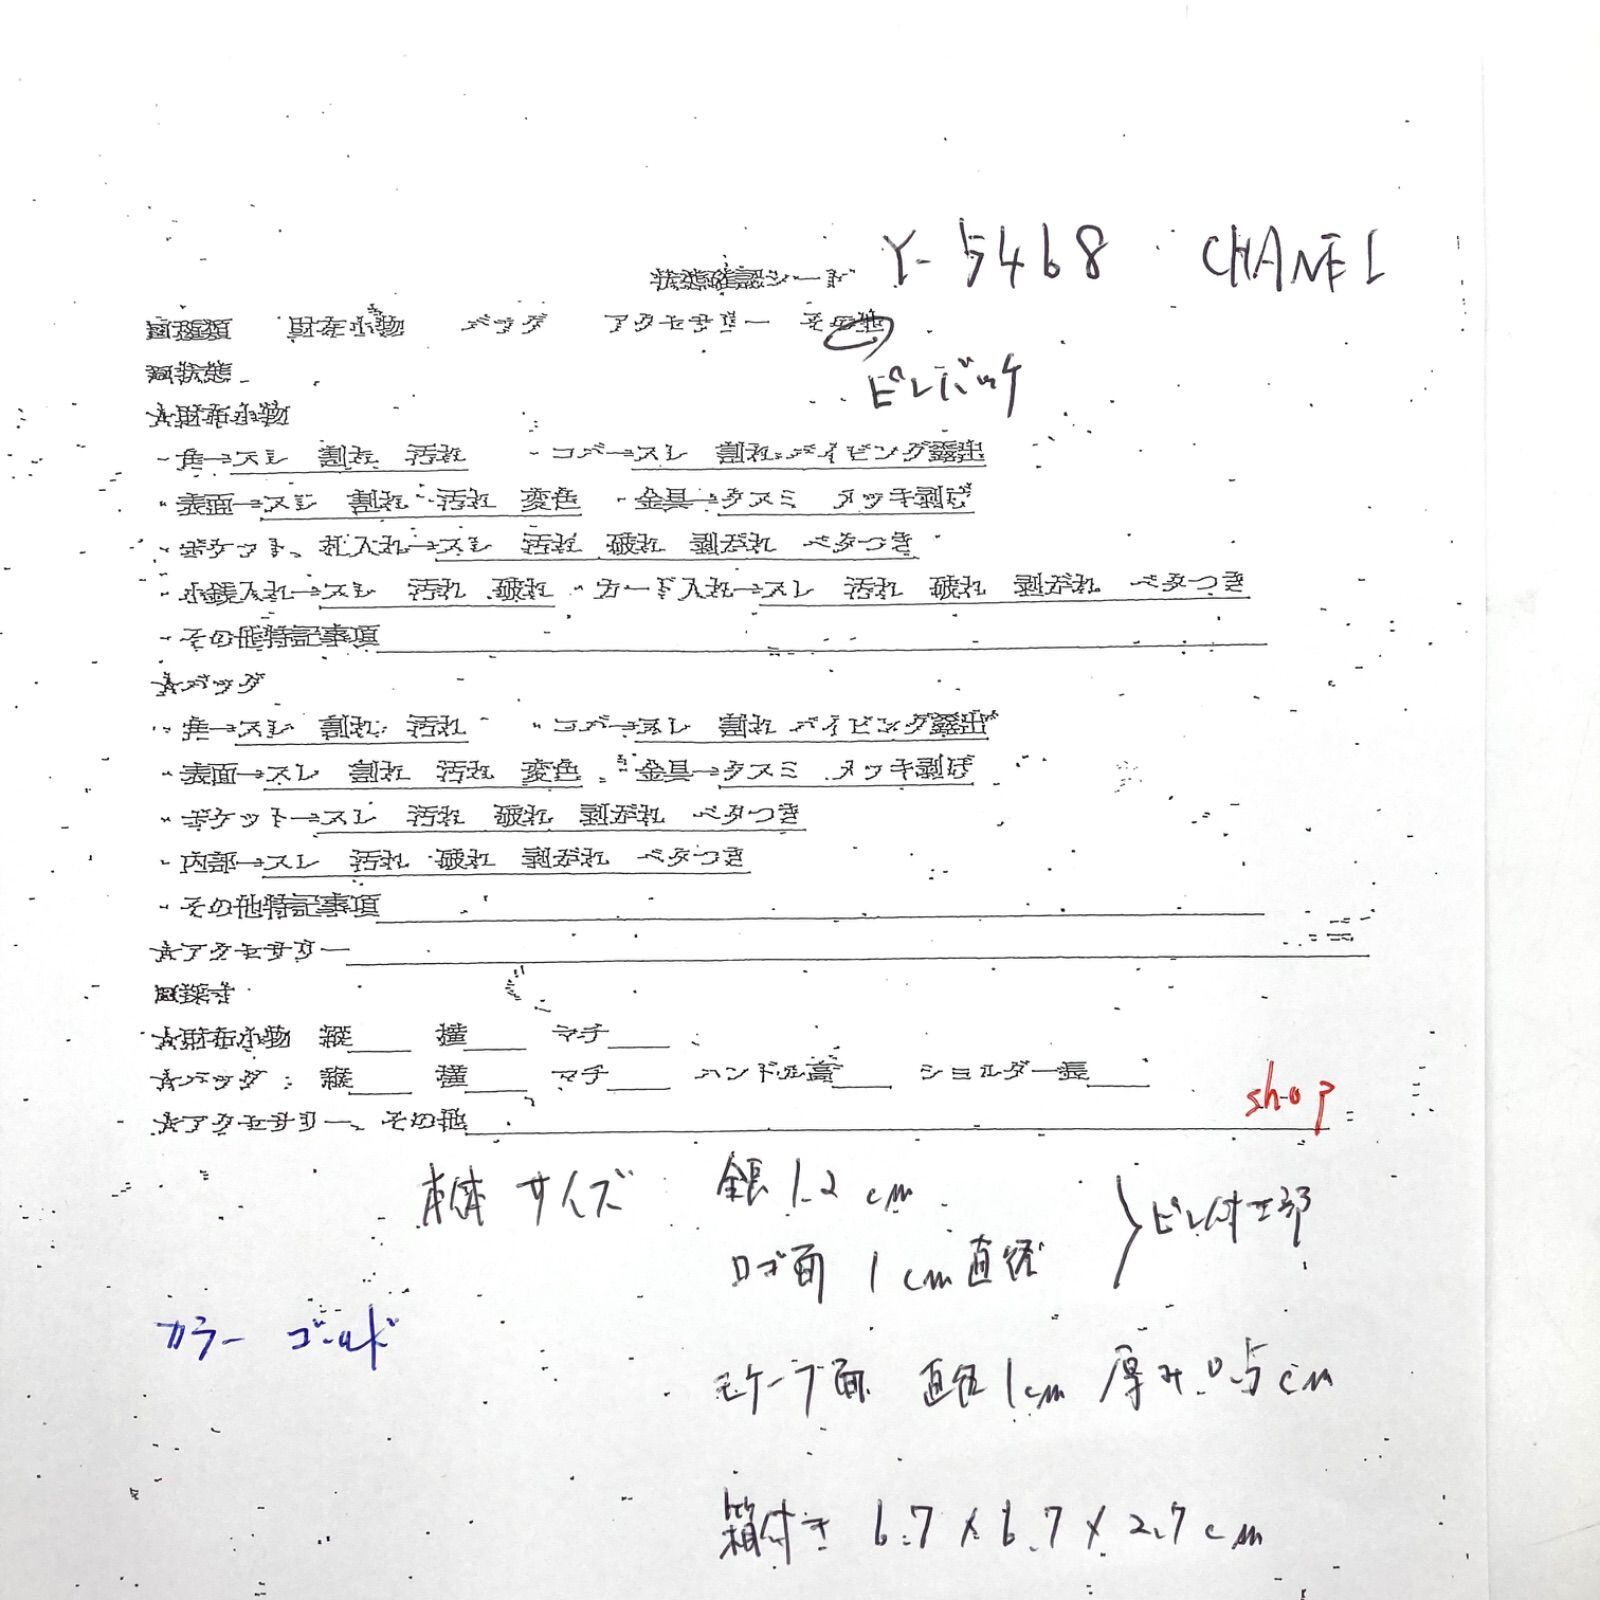 Y-5468 CHANEL
状態確認シート
■種類 財布小物 バッグ アクセサリー その他
ピンバッヂ
■状態
★財布小物
・角→スレ 割れ 汚れ ・コバ→スレ 割れ パイピング露出
・表面→スレ 割れ 汚れ 変色 ・金具→クスミ メッキ剥げ
・ポケット、札入れ→スレ 汚れ 破れ 剥がれ ベタつき
・小銭入れ→スレ 汚れ 破れ ・カード入れ→スレ 汚れ 破れ 剥がれ ベタつき
・その他特記事項
★バッグ
・角→スレ 割れ 汚れ ・コバ→スレ 割れ パイピング露出
・表面→スレ 割れ 汚れ 変色 ・金具→クスミ メッキ剥げ
・ポケット→スレ 汚れ 破れ 剥がれ ベタつき
・内部→スレ 汚れ 破れ 剥がれ ベタつき
・その他特記事項
★アクセサリー
■採寸
★財布小物 縦 横 マチ
★バッグ 縦 横 マチ ハンドル高 ショルダー長
shop
★アクセサリー、その他
本体サイズ 全長1.2cm
ロゴ面 1cm直径
ピン付工部
カラー ゴールド
モチーフ面 直径1cm 厚み0.5cm
箱付き 6.7×6.7×2.7cm